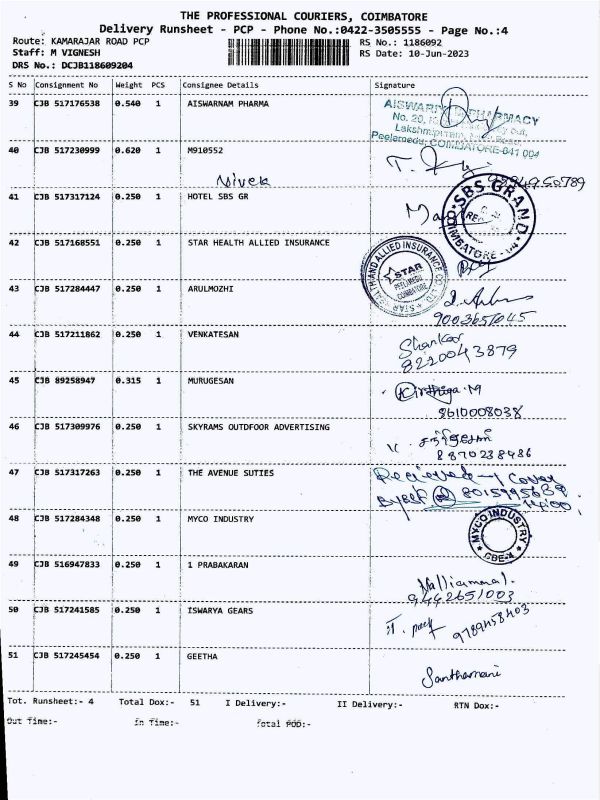 THE PROFESSIONAL COURIERS, COIMBATORE
Delivery Runsheet - PCP - Phone No.:0422-3505555 - Page No.:4
Route: KAMARAJAR ROAD PCP
RS No.: 1186092
Staff: M VIGNESH
RS Date: 10-Jun-2023
DRS No.: DCJB118609204
S No Consignment No Weight PCS Consignee Details Signature
39 CJB 517176538 0.540 1 AISWARNAM PHARMA
PHARMACY
No. 20,
Peelamedu, COIMBATORE-641 004
40 CJB 517230999 0.620 1 M910552
Nivek
41 CJB 517317124 0.250 1 HOTEL SBS GR
SBS GRAND
COIMBATORE - 04
42 CJB 517168551 0.250 1 STAR HEALTH ALLIED INSURANCE
HEALTH AND ALLIED INSURANCE CO. LTD.
STAR
PEELAMEDU
COIMBATORE
43 CJB 517284447 0.250 1 ARULMOZHI
9003651045
44 CJB 517211862 0.250 1 VENKATESAN
Shankar
8220043879
45 CJB 89258947 0.315 1 MURUGESAN
Kirthiga.M
8610008038
46 CJB 517309976 0.250 1 SKYRAMS OUTDFOOR ADVERTISING
8870238486
47 CJB 517317263 0.250 1 THE AVENUE SUTIES
Recieved - 1 Cover
14:00
48 CJB 517284348 0.250 1 MYCO INDUSTRY
MYCO INDUSTRY
CBE-4
49 CJB 516947833 0.250 1 1 PRABAKARAN
Nalliammal.
9442651003
50 CJB 517241585 0.250 1 ISWARYA GEARS
9789458403
51 CJB 517245454 0.250 1 GEETHA
Santhamani
Tot. Runsheet:- 4 Total Dox:- 51 I Delivery:- II Delivery:- RTN Dox:-
Out Time:- In Time:- Total POD:-